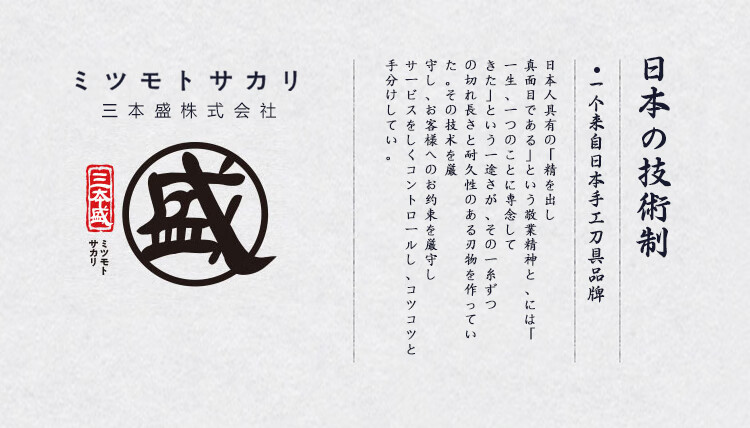 日本の技術制
•一个来自日本手工刀具品牌
日本人具有の「精を出し
真面目である」という敬業精神と、には「
一生、一つのことに専念して
きた」という一途さが、その一糸ずつ
の切れ長さと耐久性のある刃物を作ってい
た。その技术を厳
守し、お客様へのお约束を厳守し
サービスをしくコントロールし、コツコツと
手分けしてい。
ミツモトサカリ
三本盛株式会社
盛
三本盛
ミツモト
サカリ